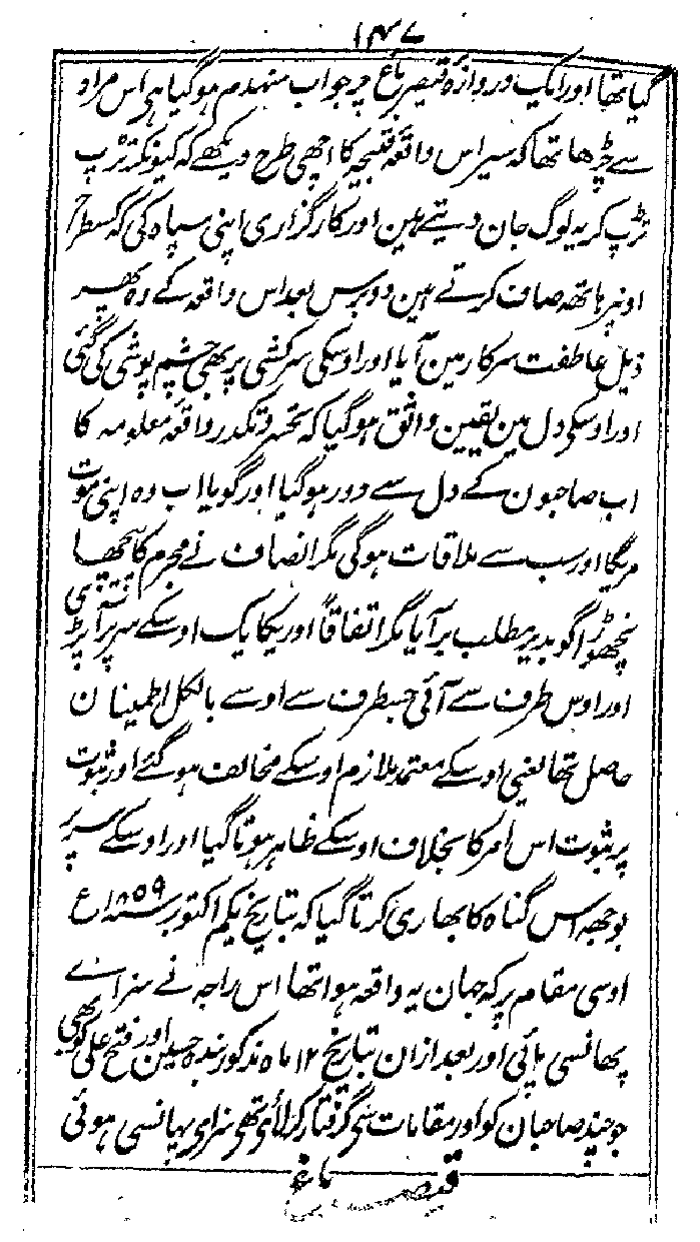 ۱۴۷
گیا تھا اور ایک دروازہ قیصر باغ پر جو اب منہدم ہوگیا ہی اس مراد
سے چڑھا تھا کہ سیر اس واقعہ قبیحہ کا اچھی طرح دیکھے کہ کیونکر تڑپ
تڑپ کر یہ لوگ جان دیتے ہین اور کارگزاری اپنی سپاہ کی کہ کسطرح
اونپر ہاتھہ صاف کرتے ہین دو برس بعد اس واقعہ کے وہ پھر
ذیل عاطفت سرکار مین آیا اور اوسکی سرکشی پر بھی چشم پوشی کی گئی
اور اوسکی دل مین یقین واثق ہوگیا کہ تکدر واقعہ معلومہ کا
اب صاحبون کے دل سے دور ہوگیا اور گویا اب وہ اپنی موت
مریگا اور سب سے ملاقات ہوگی مگر انصاف نے مجرم کا پیچھا
نچھوڑا گو بدیر مطلب بر آیا مگر اتفاقاً اور یکایک اوسکے سر پر آ پڑی
اور اوس طرف سے آئی جسطرف سے اوسے بالکل اطمینان
حاصل تھا یعنی اوسکے معتمد ملازم اوسکے مخالف ہوگئے اور ثبوت
پر ثبوت اس امر کا بخلاف اوسکے ظاہر ہوتا گیا اور اوسکے سر پر
بوجھہ اس گناہ کا بھاری کرتا گیا کہ بتاریخ یکم اکتوبر سنہ ۱۸۵۹ع
اوسی مقام پر کہ جہان یہ واقعہ ہوا تھا اس راجہ نے سزائے
پھانسی پائی اور بعد ازان بتاریخ ۱۲ ماہ مذکور بندہ حسین اور فتح علی کو بھی
جو چند صاحبان کو اور مقامات سی گرفتار کر لائی تھی سزای پہانسی ہوئی
قیصر باغ